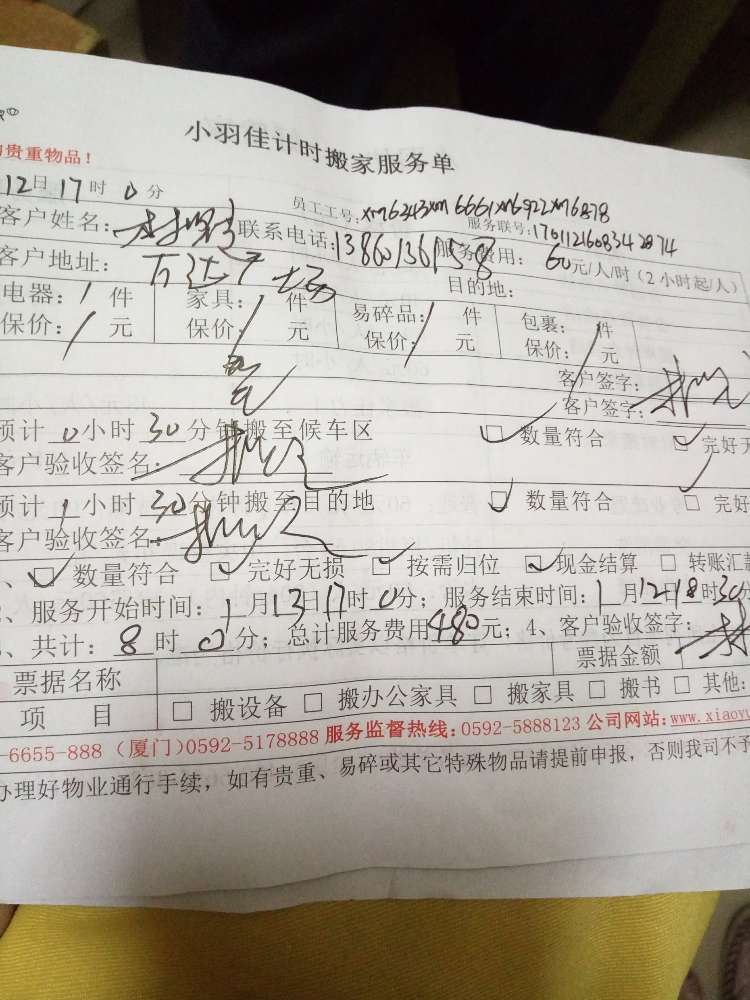 小羽佳计时搬家服务单
贵重物品！
12日17时0分 员工工号：xm6343xm6661xm6922xm6878
客户姓名： 联系电话：13860136158 服务联号：1701121608342874
服务费用：60元/人/时（2小时起/人）
客户地址：万达广场 目的地：
电器：/件 家具：/件 易碎品：/件 包裹：/件
保价：/元 保价：/元 保价：/元 保价：/元
客户签字：
客户签字：
预计0小时30分钟搬至候车区 ☑ 数量符合 ☑ 完好无
客户验收签名：
预计1小时30分钟搬至目的地 ☑ 数量符合 □ 完好
客户验收签名：
、☑ 数量符合 ☑ 完好无损 ☑ 按需归位 ☑ 现金结算 □ 转账汇款
、服务开始时间：1月13日17时0分；服务结束时间：1月12日18时30分
、共计：8时0分；总计服务费用480元；4、客户验收签字：
票据名称 票据金额
项目 □ 搬设备 □ 搬办公家具 □ 搬家具 □ 搬书 □ 其他：
-6655-888（厦门）0592-5178888 服务监督热线：0592-5888123 公司网站：www.xiaoyu
办理好物业通行手续，如有贵重、易碎或其它特殊物品请提前申报，否则我司不予